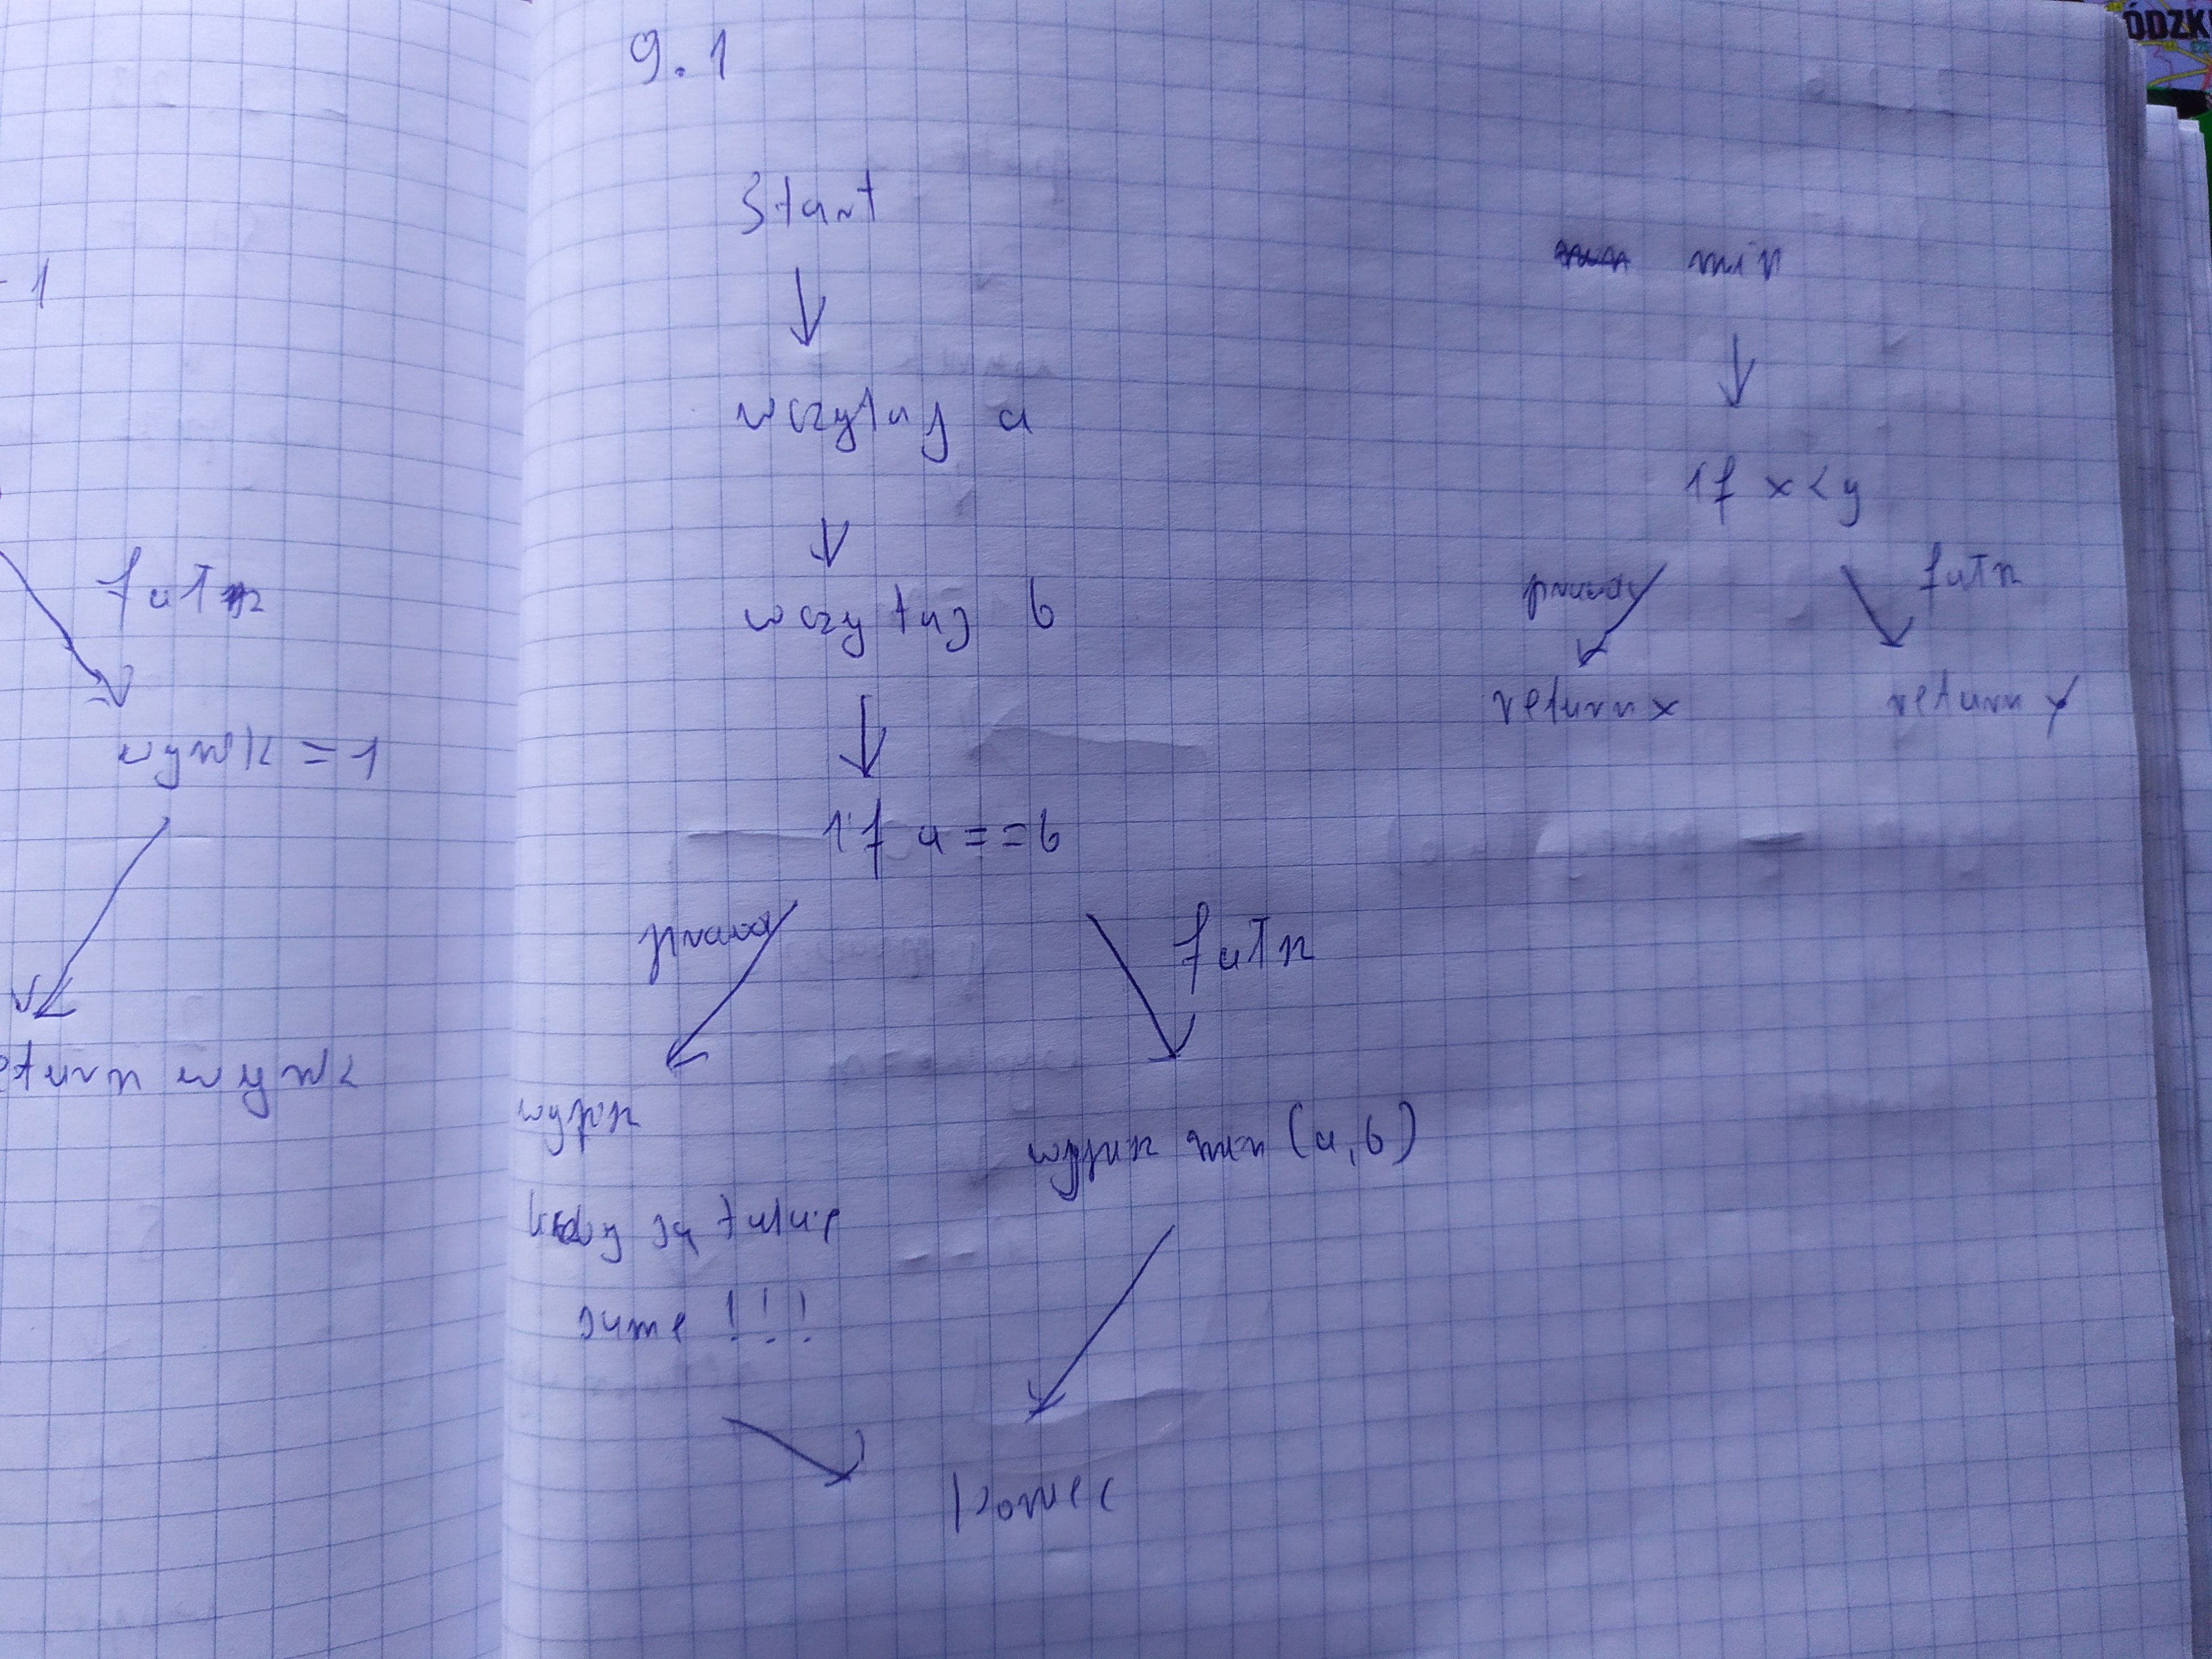 - 1
fałsz
wynik = 1
eturn wynik
9.1
Start
wczytaj a
wczytaj b
if a == b
prawda
fałsz
wypisz
liczby są takie
same !!!
wypisz min (a, b)
koniec
min
if x < y
prawda
fałsz
return x
return y
ÓDZK